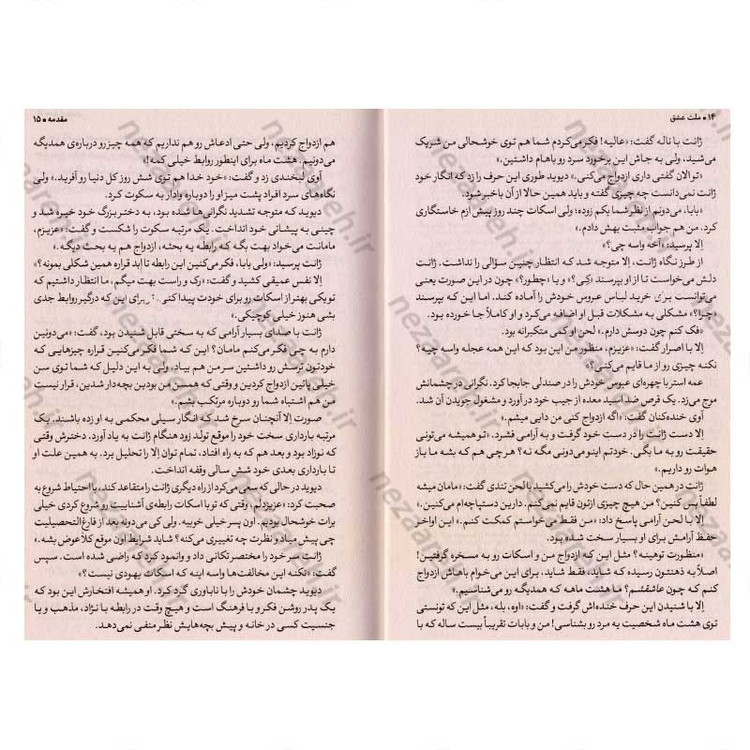 ۱۴ ■ ملت عشق
ژانت با ناله گفت: «عالیه! فکر می‌کردم شما هم توی خوشحالی من شریک
می‌شید، ولی به جاش این برخورد سرد رو باهام داشتین.»
«تو الان گفتی داری ازدواج می‌کنی.» دیوید طوری این حرف را زد که انگار خود
ژانت نمی‌دانست چه چیزی گفته و باید همین حالا از آن باخبر شود.
«بابا، می‌دونم از نظر شما یکم زوده؛ ولی اسکات چند روز پیش ازم خاستگاری
کرد. من هم جواب مثبت بهش دادم.»
اِلا پرسید: «آخه واسه چی؟»
از طرز نگاه ژانت، اِلا متوجه شد که انتظار چنین سؤالی را نداشت. ژانت
دلش می‌خواست تا از او بپرسند «کِی؟» و یا «چطور؟» چون در این صورت یعنی
می‌توانست برای خرید لباس عروس خودش را آماده کند. اما این که بپرسند
«چرا؟» مشکلی به مشکلات قبل او اضافه می‌کرد و او کاملاً جا خورده بود.
«فک کنم چون دوسش دارم.» لحن او کمی متکبرانه بود.
اِلا با اصرار گفت: «عزیزم، منظور من این بود که این همه عجله واسه چیه؟
نکنه چیزی رو از ما قایم می‌کنی؟»
عمه استر با چهره‌ای عبوس خودش را در صندلی جابجا کرد. نگرانی در چشمانش
موج می‌زد. یک قرص ضد اسید معده از جیب خود در آورد و مشغول جویدن آن شد.
آوی خنده‌کنان گفت: «اگه ازدواج کنی من دایی میشم.»
اِلا دست ژانت را در دست خود گرفت و به آرامی فشرد. «تو همیشه می‌تونی
حقیقت رو به ما بگی. خودتم اینو می‌دونی مگه نه؟ هر چی هم که بشه ما باز
هوات رو داریم.»
ژانت در همین حال که دست خودش را می‌کشید با لحن تندی گفت: «مامان میشه
لطفاً بس کنین؟ من هیچ چیزی ازتون قایم نمی‌کنم. دارین دستپاچه‌ام می‌کنین.»
اِلا با لحن آرامی پاسخ داد: «من فقط می‌خواستم کمکت کنم.» این اواخر
حفظ آرامش برای او بسیار سخت شده بود.
«منظورت توهینه؟ مثل این که ازدواج من و اسکات رو به سخره گرفتین!
اصلاً به ذهنتون رسیده که شاید، فقط شاید، برای این می‌خوام باهاش ازدواج
کنم که چون عاشقشم؟ ما هشت ماهه که همدیگه رو می‌شناسیم.»
اِلا با شنیدن این حرف خنده‌اش گرفت و گفت: «اوه، بله، مثل این که تونستی
توی هشت ماه شخصیت یه مرد رو بشناسی! من و بابات تقریباً بیست ساله که با
مقدمه ■ ۱۵
هم ازدواج کردیم، ولی حتی ادعاش رو هم نداریم که همه چیز رو درباره‌ی همدیگه
می‌دونیم. هشت ماه برای اینطور روابط خیلی کمه!»
آوی لبخندی زد و گفت: «خود خدا هم توی شش روز کل دنیا رو آفرید.» ولی
نگاه‌های سرد افراد پشت میز او را دوباره وادار به سکوت کرد.
دیوید که متوجه تشدید نگرانی‌ها شده بود، به دختر بزرگ خود خیره شد و
چینی به پیشانی خود انداخت. یک مرتبه سکوت را شکست و گفت: «عزیزم،
مامانت می‌خواد بهت بگه که رابطه یه بحثه، ازدواج هم یه بحث دیگه.»
ژانت پرسید: «ولی بابا، فکر می‌کنین این رابطه تا اِبد قراره همین شکلی بمونه؟»
اِلا نفس عمیقی کشید و گفت: «رک و راست بهت میگم، ما انتظار داشتیم که
تو یکی بهتر از اسکات رو برای خودت پیدا کنی. برای این که درگیر روابط جدی
بشی هنوز خیلی کوچیکی.»
ژانت با صدای بسیار آرامی که به سختی قابل شنیدن بود، گفت: «می‌دونین
دارم به چی فکر می‌کنم مامان؟ این که شما فکر می‌کنین قراره چیزهایی که
خودتون ترسش رو داشتین سر من هم بیاد. ولی به این دلیل که شما توی سن
خیلی پائین ازدواج کردین و وقتی که همسن من بودین بچه‌دار شدین، قرار نیست
من هم اشتباه شما رو دوباره مرتکب بشم.»
صورت اِلا آنچنان سرخ شد که انگار سیلی محکمی به او زده باشند. یک
مرتبه بارداری سخت خود را موقع تولد زود هنگام ژانت به یاد آورد. دخترش وقتی
که نوزاد بود و بعد هم که به راه افتاد، تمام توان اِلا را تحلیل برد. به همین علت او
تا بارداری بعدی خود شش سالی وقفه انداخت.
دیوید در حالی که سعی می‌کرد از راه دیگری ژانت را متقاعد کند، با احتیاط شروع به
صحبت کرد: «عزیزدلم، وقتی که تو با اسکات رابطه‌ی آشناییت رو شروع کردی خیلی
برات خوشحال بودیم. اون پسر خیلی خوبیه. ولی کی می‌دونه بعد از فارغ‌التحصیلیت
چی پیش میاد و نظرت چه تغییری می‌کنه؟ شاید شرایط اون موقع کلاً عوض بشه.»
ژانت سر خود را مختصر تکانی داد و وانمود کرد که راضی شده است. سپس
گفت: «نکنه این مخالفت‌ها واسه اینه که اسکات یهودی نیست؟»
دیوید چشمان خودش را با ناباوری گرد کرد. او همیشه افتخارش این بود که
یک پدر روشن فکر و با فرهنگ است و هیچ وقت در رابطه با نژاد، مذهب و یا
جنسیت کسی در خانه و پیش بچه‌هایش نظر منفی نمی‌دهد.
nezzareh.ir